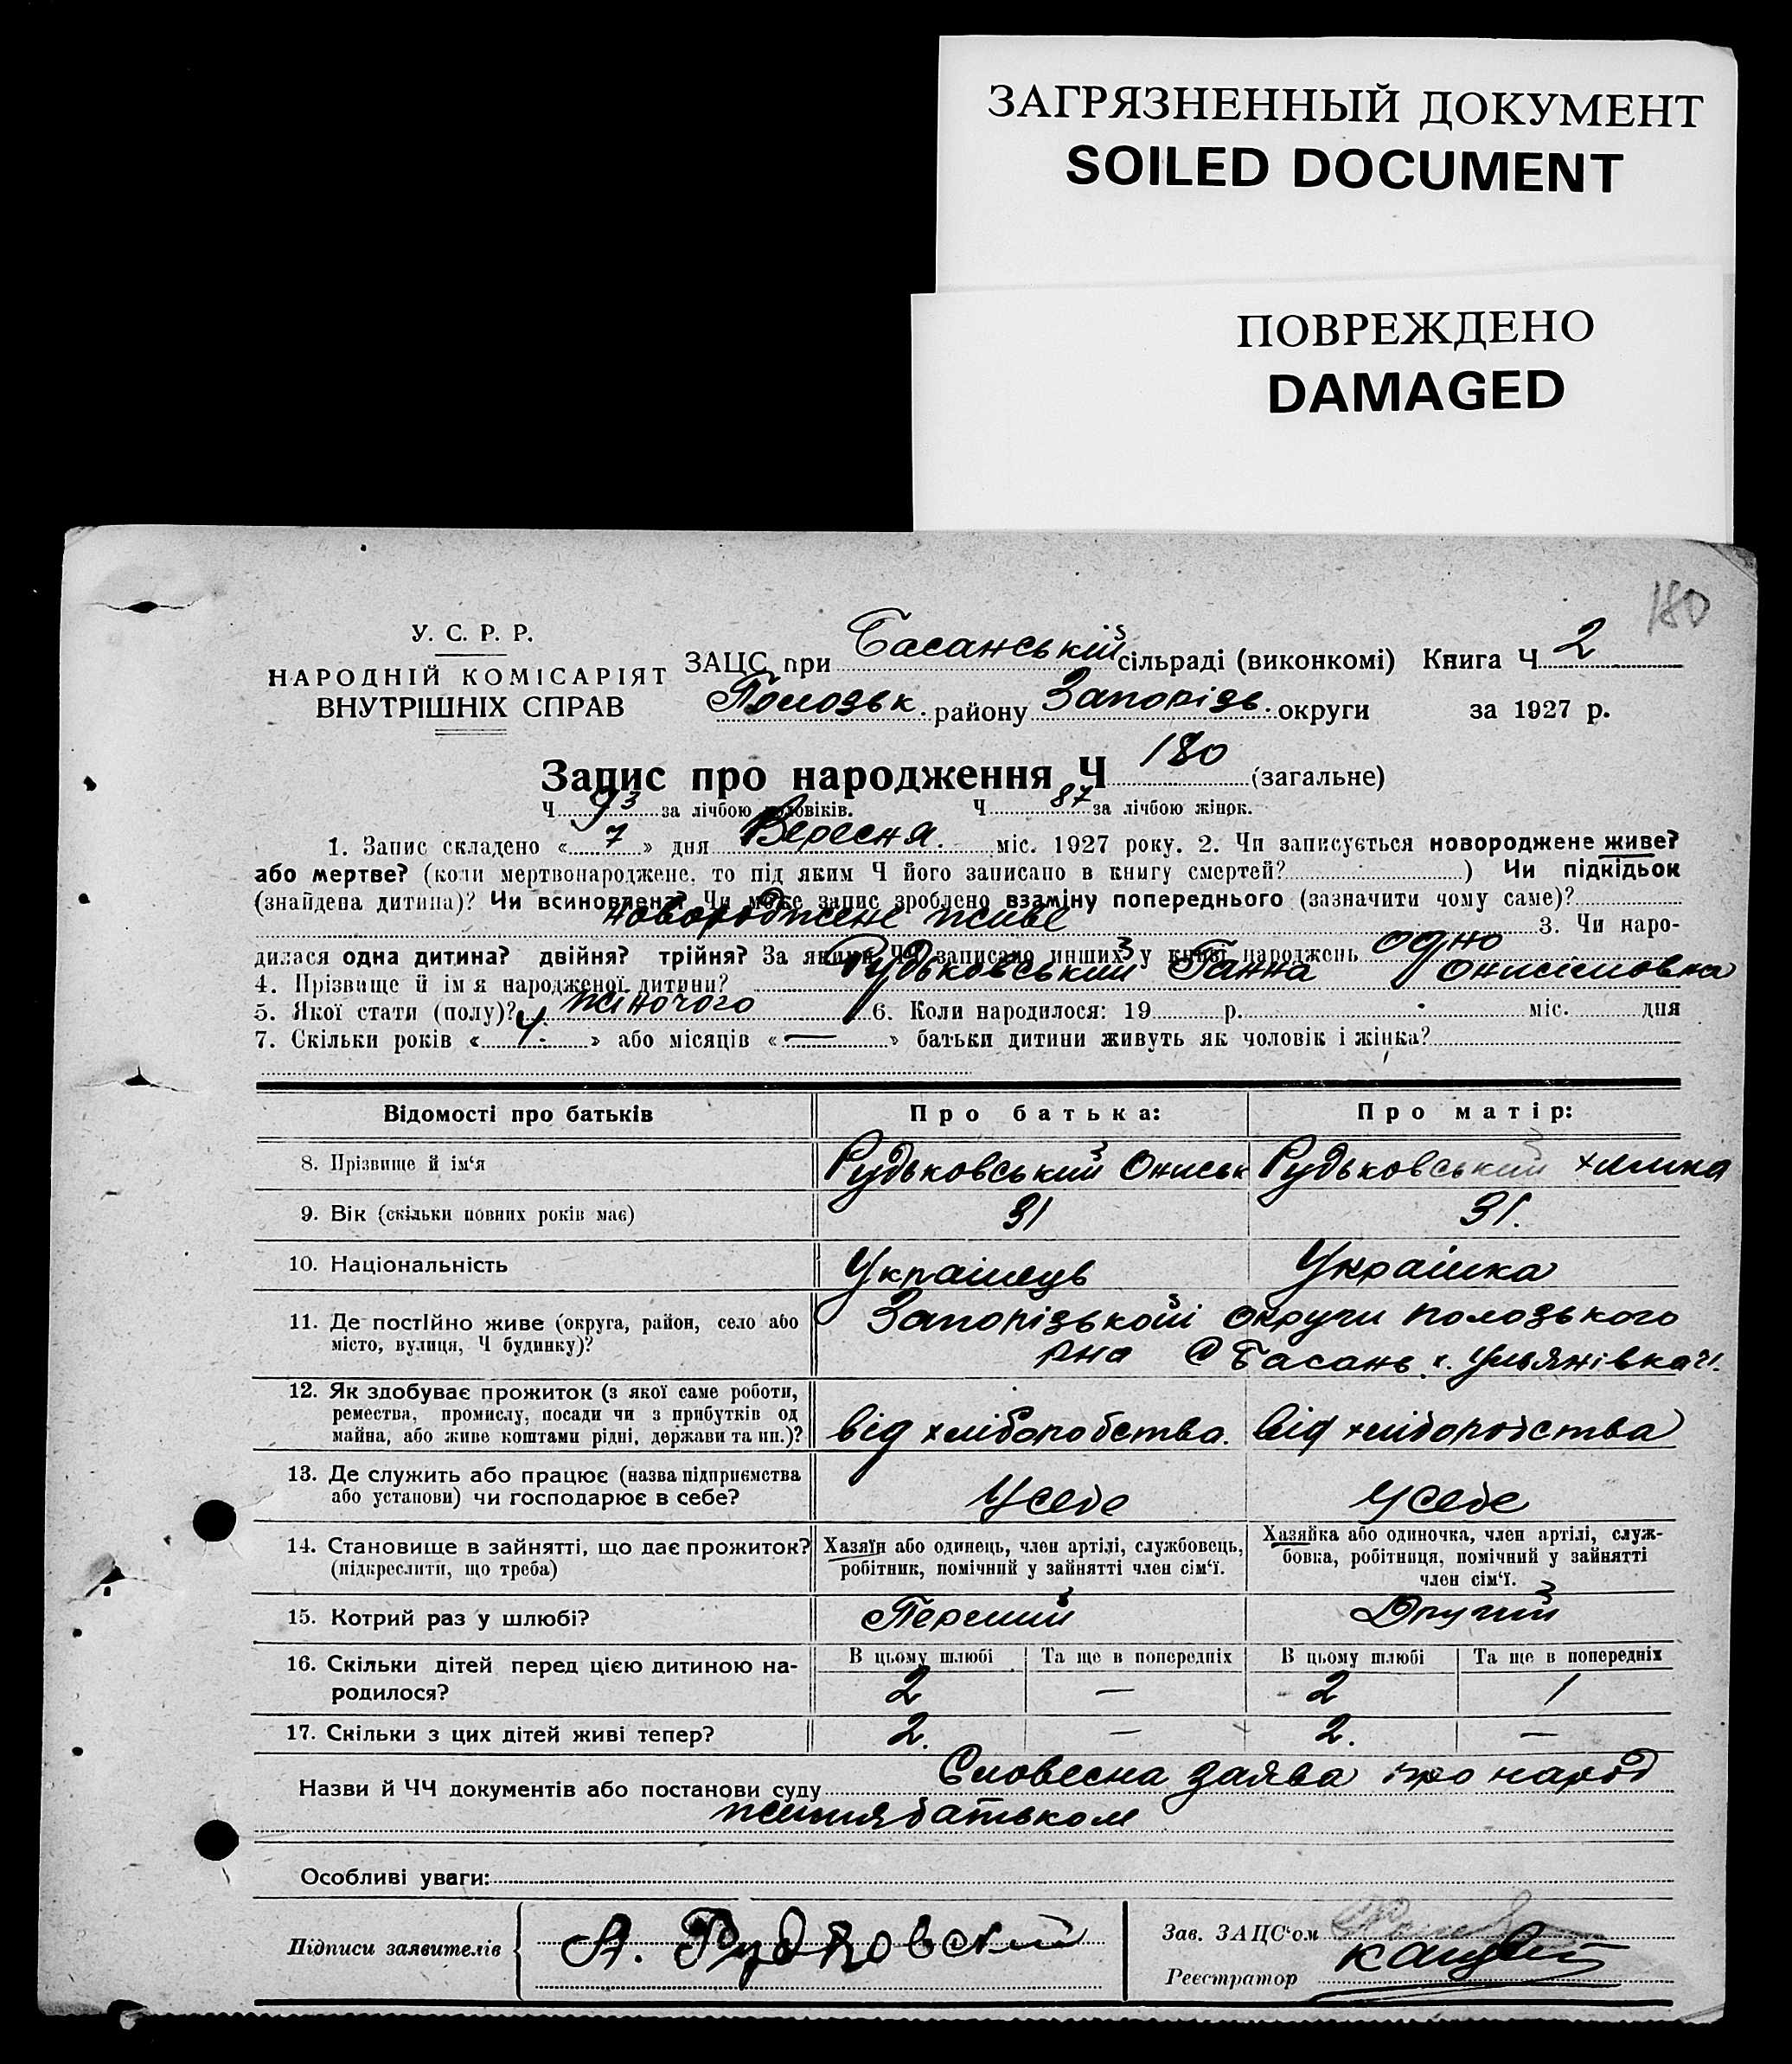 ЗАГРЯЗНЕННЫЙ ДОКУМЕНТ
SOILED DOCUMENT
ПОВРЕЖДЕНО
DAMAGED
180
У. С. Р. Р.
НАРОДНІЙ КОМІСАРІЯТ
ВНУТРІШНІХ СПРАВ
ЗАЦС при Басанський сільраді (виконкомі) Книга Ч 2
Полозьк. району Запорізь. округи за 1927 р.
Запис про народження Ч 180 (загальне)
Ч 93 за лічбою чоловіків. Ч 87 за лічбою жінок.
1. Запис складено «7» дня Вересня. міс. 1927 року. 2. Чи записується новороджене живе?
або мертве? (коли мертвонароджене, то під яким Ч його записано в книгу смертей? ) Чи підкідьок
(знайдена дитина)? Чи всиновлена? Чи може запис зроблено взаміну попереднього (зазначити чому саме)?
новороджене живе 3. Чи наро-
дилася одна дитина? двійня? трійня? За якими ЧЧ записано инших у книзі народжень одно
4. Прізвище й ім'я народженої дитини? Рудьковський Ганна Онисімовна
5. Якої стати (полу)? жіночого 6. Коли народилося: 19 р. міс. дня
7. Скільки років «4.» або місяців «—» батьки дитини живуть як чоловік і жінка?
Відомості про батьків Про батька: Про матір:
8. Прізвище й ім'я Рудьковський Ониськ Рудьковський
9. Вік (скільки повних років має) 31 31.
10. Національність Українець Українка
11. Де постійно живе (округа, район, село або
місто, вулиця, Ч будинку)?
Запорізької округи Полозького
рна С Басань х. Ульянівка
12. Як здобуває прожиток (з якої саме роботи,
ремества, промислу, посади чи з прибутків од
майна, або живе коштами рідні, держави та ин.)?
від хліборобства. від хліборобства
13. Де служить або працює (назва підприємства
або установи) чи господарює в себе?
У себе У себе
14. Становище в зайнятті, що дає прожиток?
(підкреслити, що треба)
Хазяїн або одинець, член артілі, службовець,
робітник, помічний у зайнятті член сім'ї.
Хазяйка або одиночка, член артілі, служ-
бовка, робітниця, помічний у зайнятті
член сім'ї.
15. Котрий раз у шлюбі? Перший Другий
16. Скільки дітей перед цією дитиною на-
родилося?
В цьому шлюбі Та ще в попередніх В цьому шлюбі Та ще в попередніх
2 — 2 1
17. Скільки з цих дітей живі тепер? 2. — 2. —
Назви й ЧЧ документів або постанови суду Словесна заява про народ
ження батьком
Особливі уваги:
Підписи заявителів А. Рудковский
Зав. ЗАЦС'ом
Реєстратор